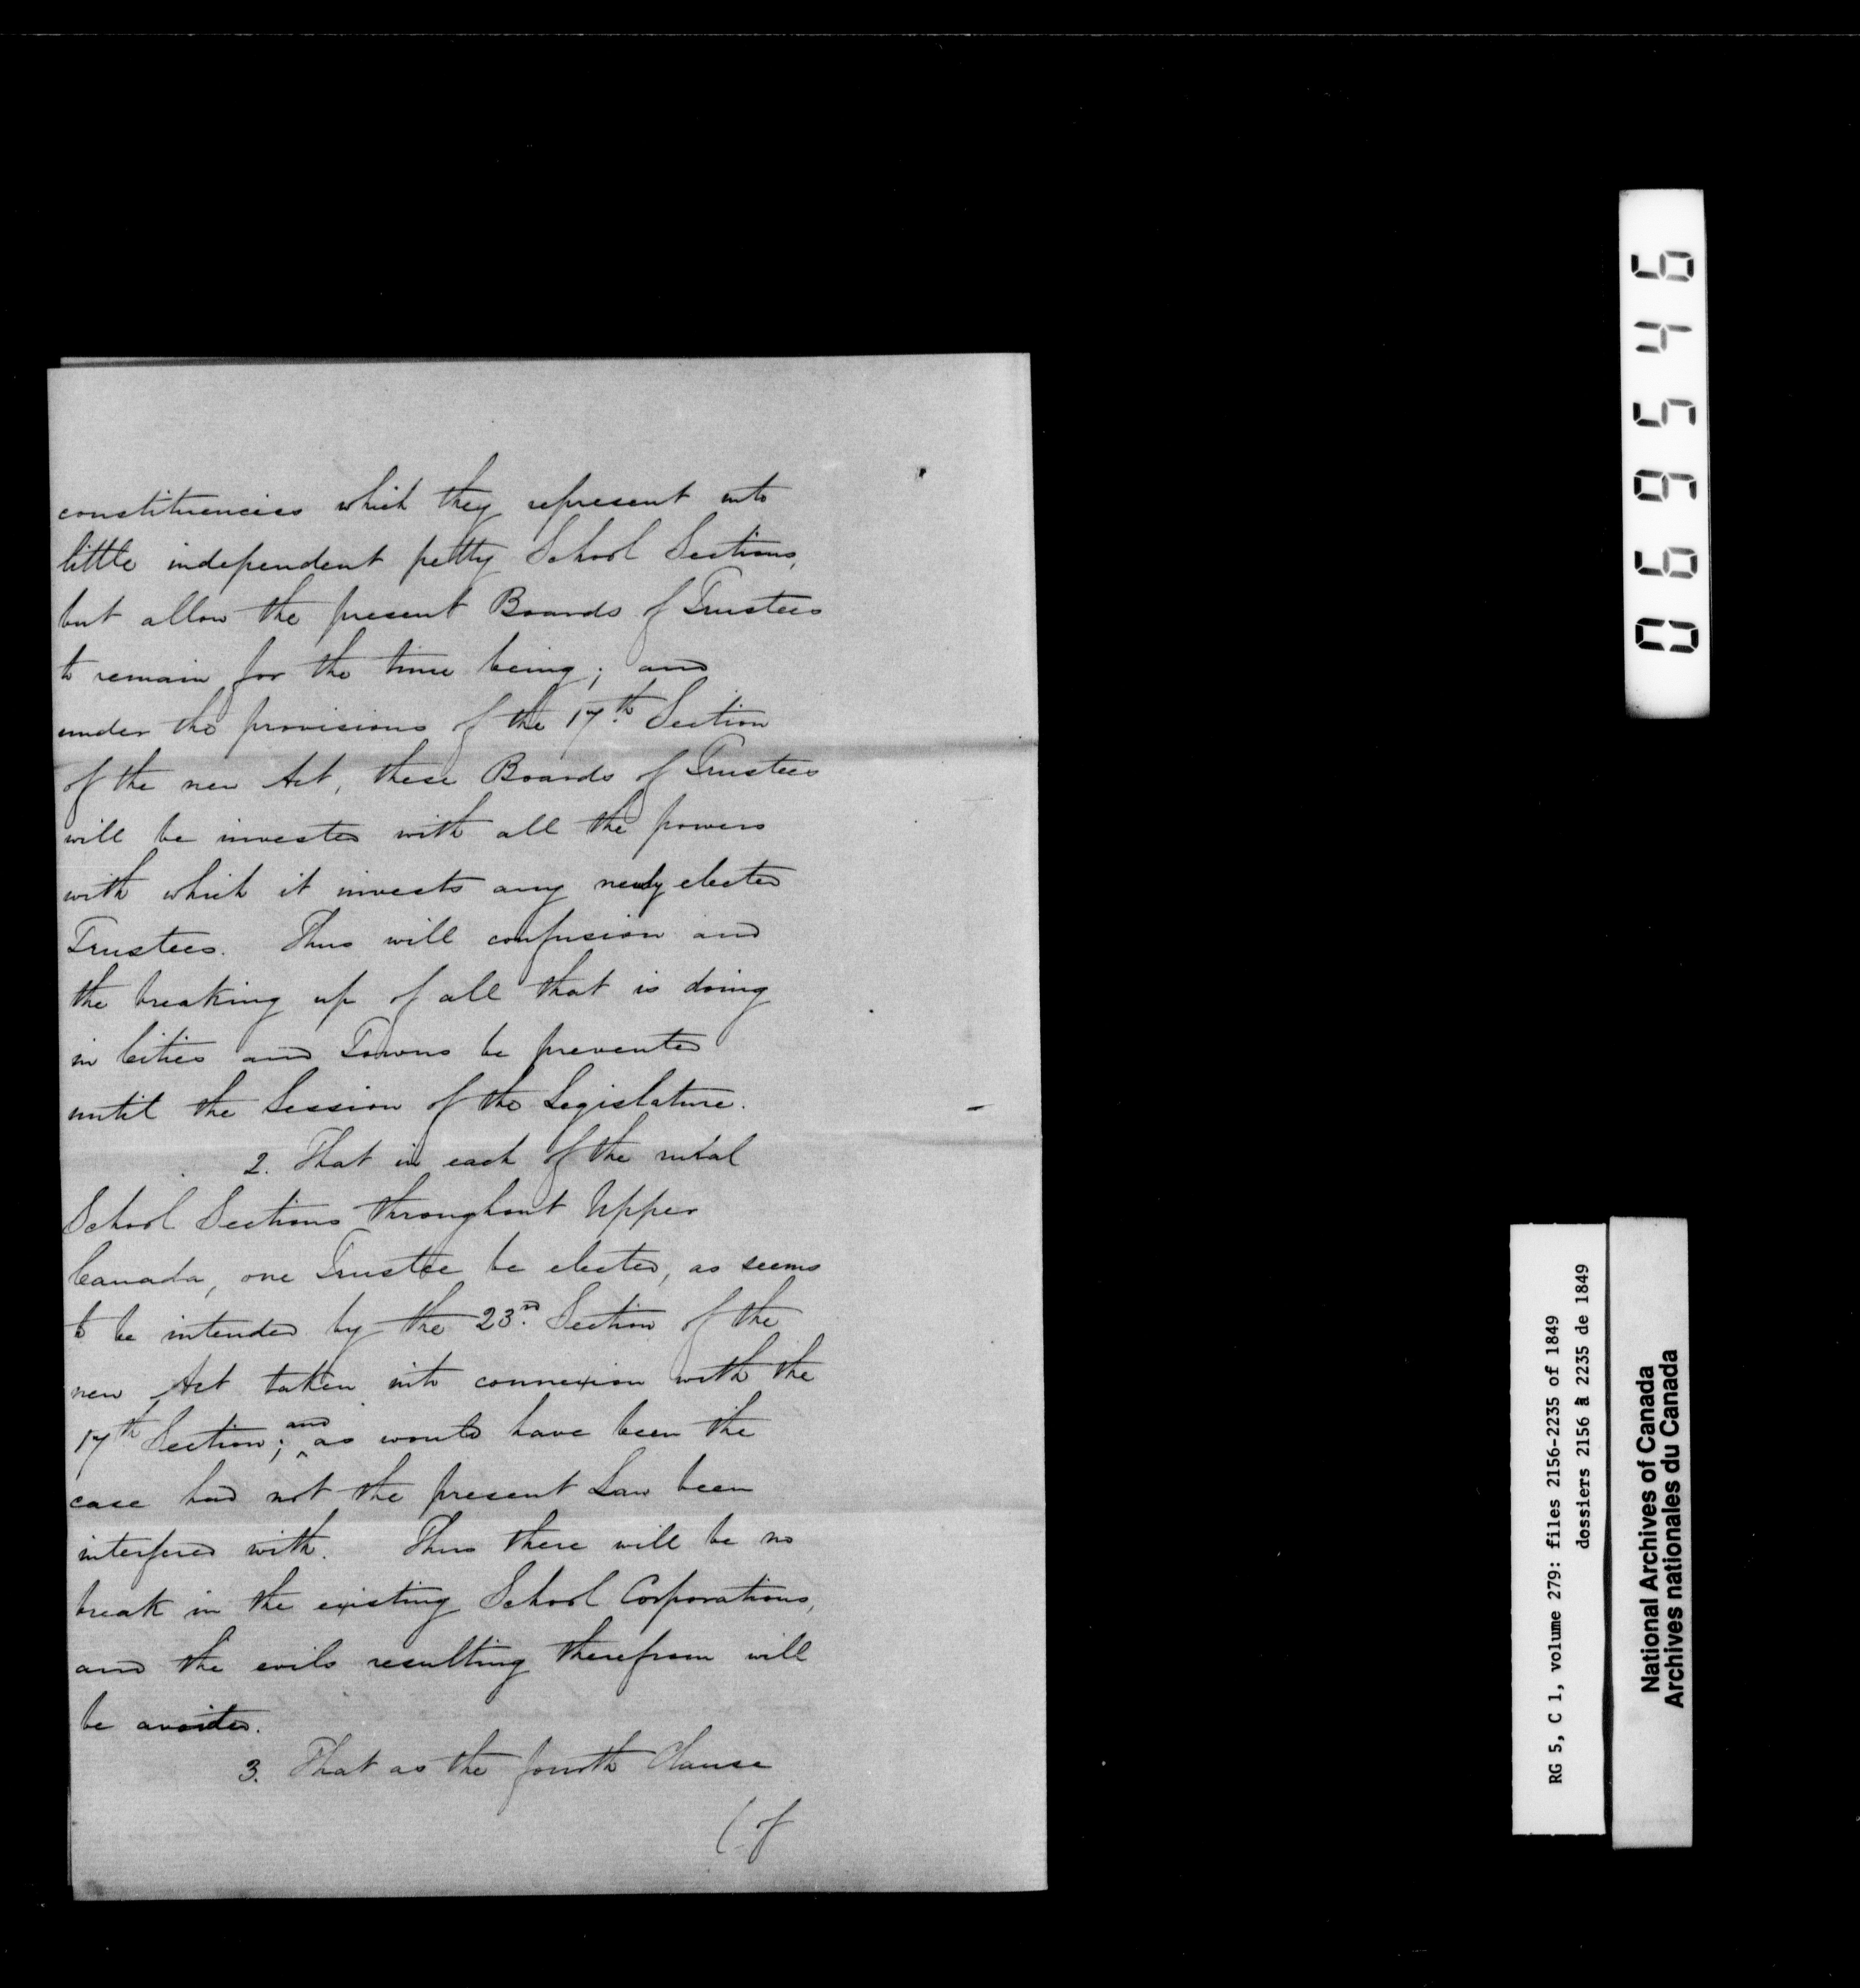 constituencies which they represent into
little independent petty School Sections,
but allow the present Boards of Trustees
to remain for the time being; and
under the provisions of the 17th Section
of the new Act, these Boards of Trustees
will be invested with all the powers
with which it invests any newly elected
Trustees. Thus will confusion and
the breaking up of all that is doing
in Cities and Towns be prevented
until the Session of the Legislature.
2. That in each of the rural
School Sections throughout Upper
Canada, one Trustee be elected, as seems
to be intended by the 23rd. Section of the
new Act taken into connexion with the
17th Section; and as would have been the
case had not the present Law been
interfered with. Thus there will be no
break in the existing School Corporations,
and the evils resulting therefrom will
be avoided.
3. That as the fourth Clause
(of
069546
RG 5, C 1, volume 279: files 2156-2235 of 1849
dossiers 2156 à 2235 de 1849
National Archives of Canada
Archives nationales du Canada